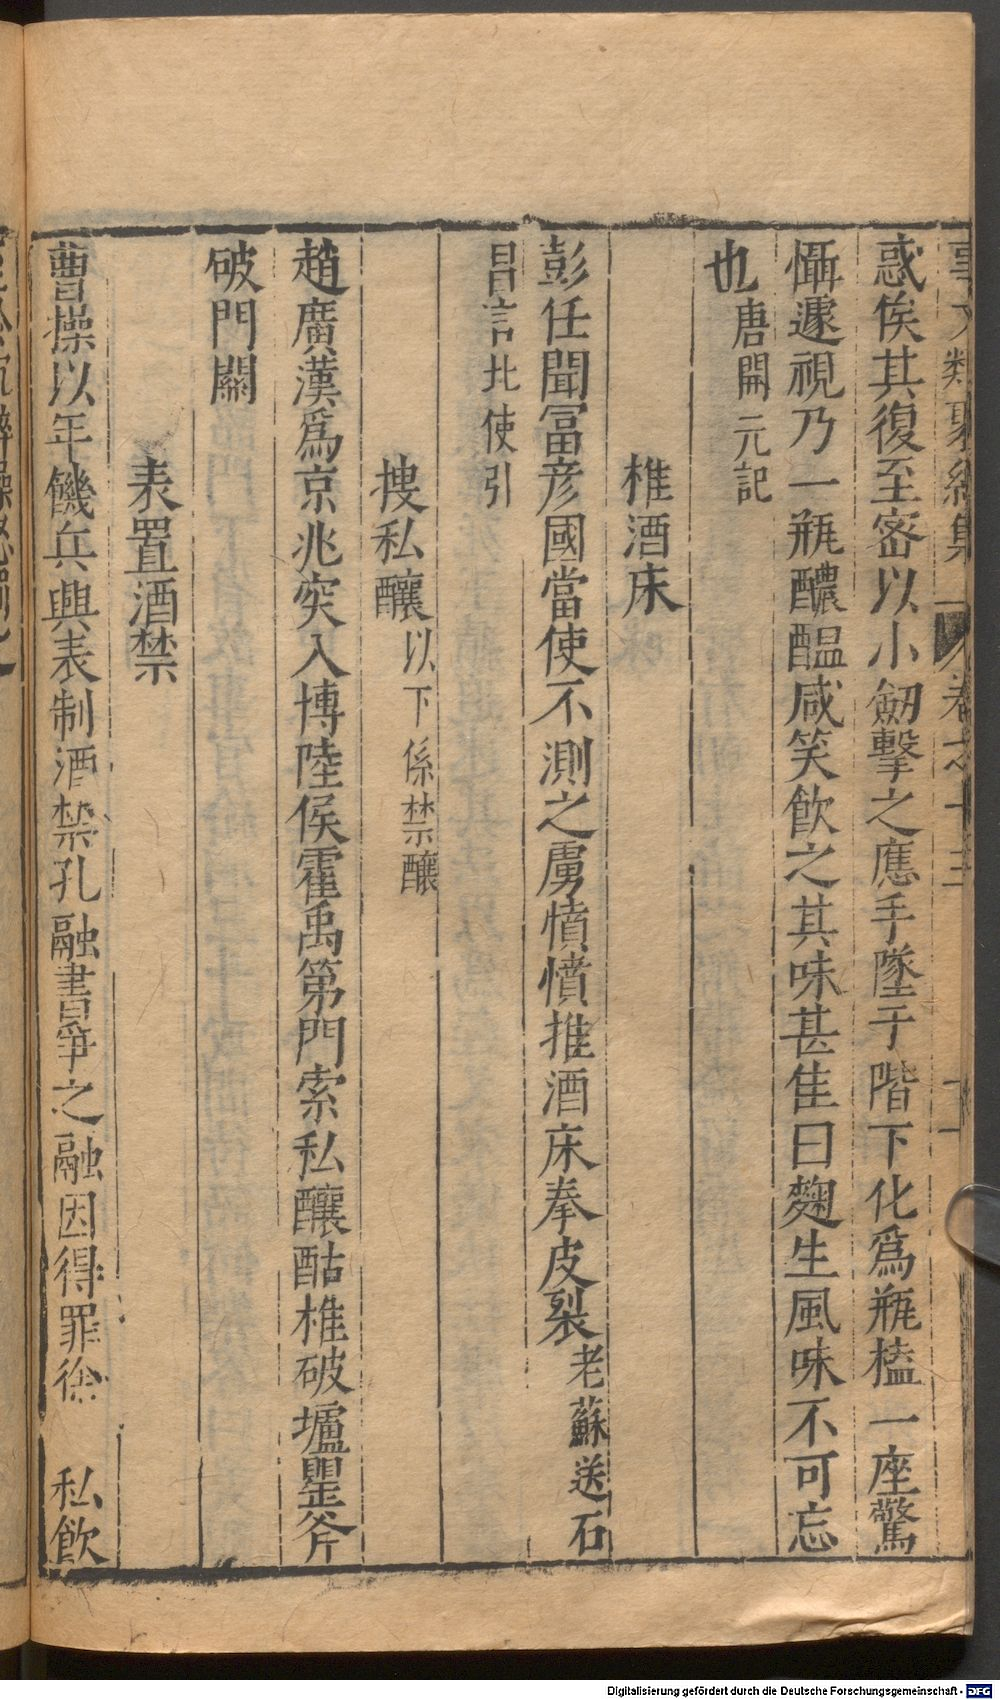 事文類聚續集 卷之十三 十一
惑俟其復至密以小劒擊之應手墜于階下化爲瓶榼一座驚
懾遽視乃一瓶醲醖咸笑飲之其味甚隹曰麴生風味不可忘
也唐開元記
椎酒床
彭任聞冨彦國當使不測之虜憤憤推酒床奉皮裂老蘇送石
昌言北使引
搜私釀以下係禁釀
趙廣漢爲京兆突入博陸侯霍禹第門索私釀酤椎破壚罌斧
破門關
表置酒禁
曹操以年饑兵興表制酒禁孔融書爭之融因得罪徐 私飲
Digitalisierung gefördert durch die Deutsche Forschungsgemeinschaft - DFG